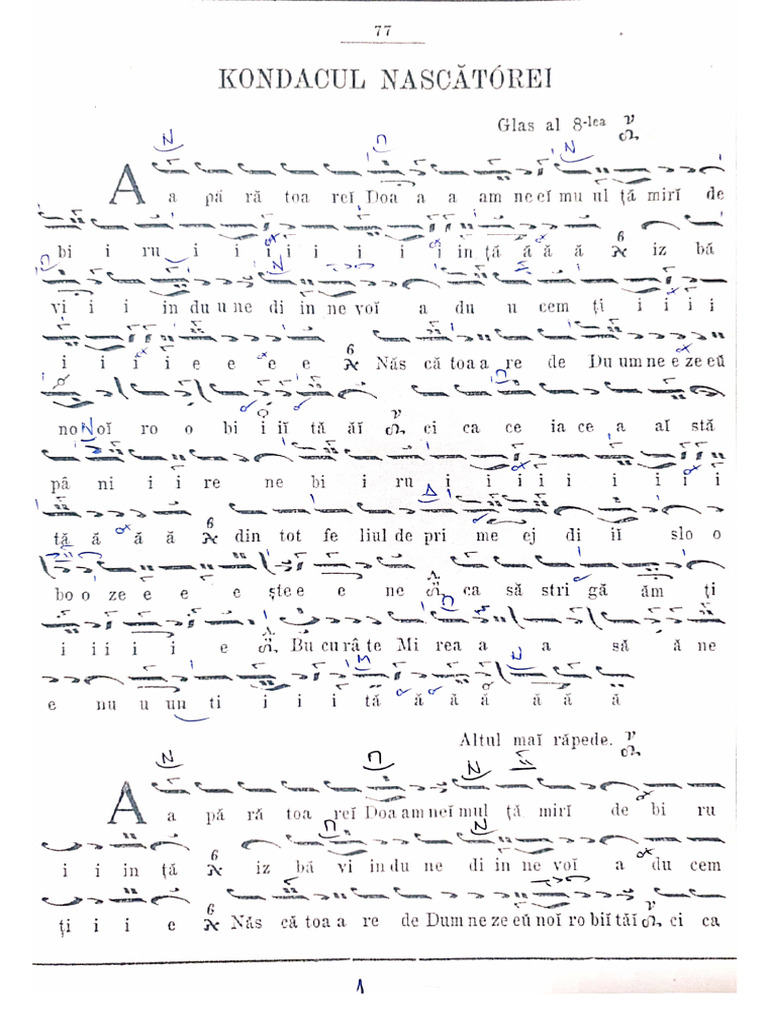 77
KONDACUL NASCĂTÓREI
Glas al 8-lea
A a pă ră toa reĭ Doa a a am ne eĭ mu ul ţă mirĭ de
bi i ru i i i i i i i i in ţă ă ă ă iz bă
vi i i in du u ne di in ne voĭ a du u cem ţi i i i i
i i i i e e e e Năs că toa a re de Du um ne e ze eŭ
no oĭ ro o bi i iĭ tă ăĭ ci ca ce ia ce a aĭ stă
pâ ni i i re ne bi i ru i i i i i i i i
tă ă ă ă din tot fe liul de pri me ej di iĭ slo o
bo o ze e e e ște e e ne ca să stri gă ăm ţi
i i i i i e Bu cu râ te Mi rea a a să ă ne
e nu u un ti i i i tă ă ă ă ă ă ă
Altul maĭ răpede.
A a pă ră toa reĭ Doa am neĭ mul ţă mirĭ de bi ru
i i in ţă iz bă vi in du ne di in ne voĭ a du cem
ţi i i e Năs că toa a re de Dum ne ze eŭ noĭ ro biĭ tăĭ ci ca
1